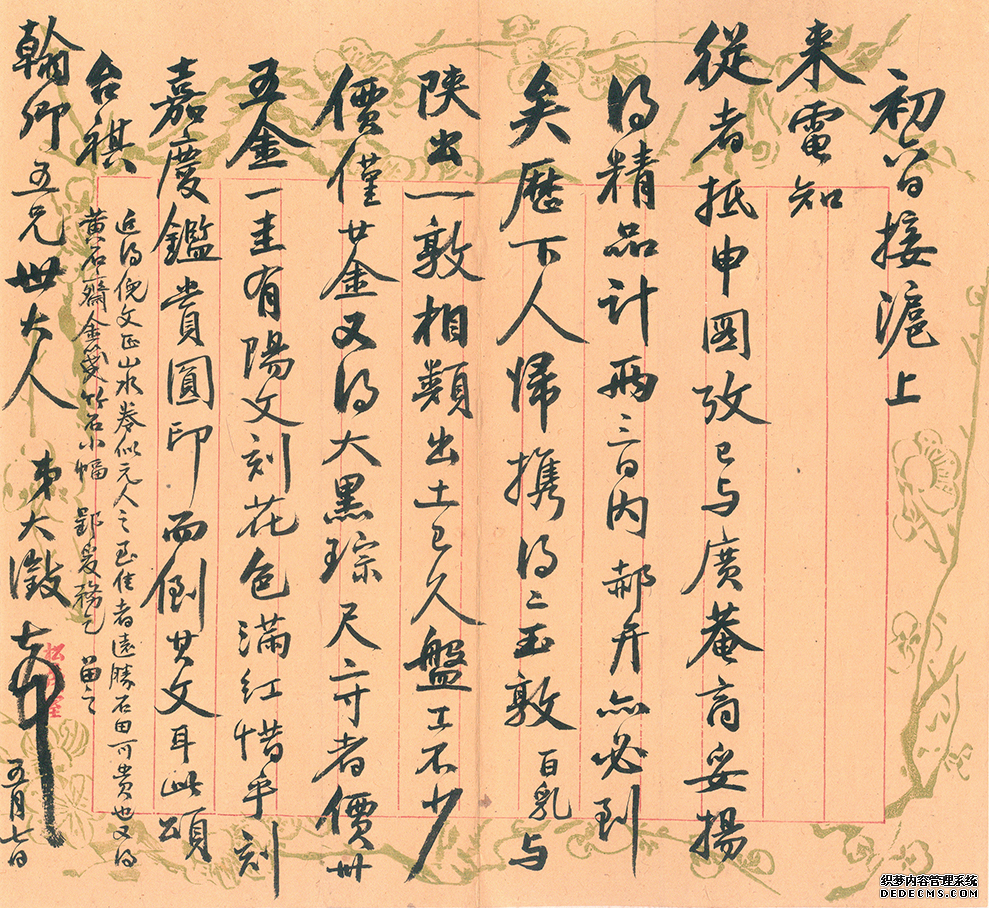 初六日接滬上
来電知
從者抵申圖攷已与廣菴商妥揚
得精品計兩三日内郝弁亦必到
矣歷下人歸携得二玉敦百乳与
陝出一敦相類出土已久盤工不少
價僅廿金又得大黑琮尺六寸者價卅
五金一圭有陽文刻花色滿紅惜乎刻
嘉慶鑑賞圓印而倒其文耳此頌
台祺
翰卿五兄世大人 弟大澂
五月七日
近得倪文正山水卷似元人之至佳者遠勝石田可貴也又得
黄石齋金箋竹石小幅 鄞爰務乞 留之
织梦内容管理系统
DEDECMS.COM